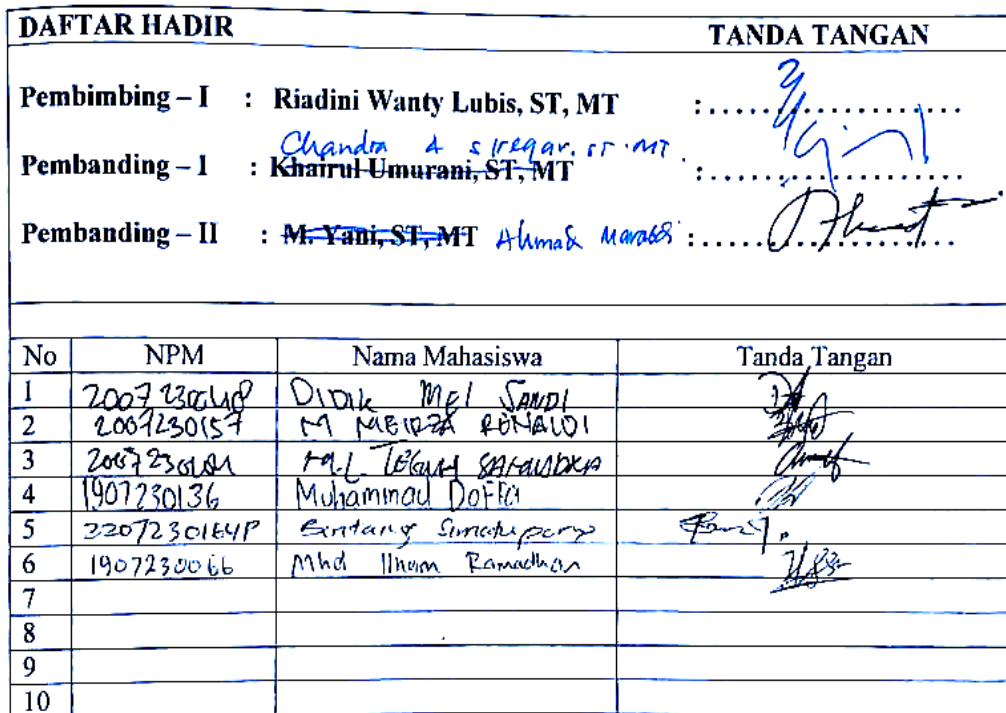 DAFTAR HADIR TANDA TANGAN
Pembimbing – I : Riadini Wanty Lubis, ST, MT :.....................
Chandra A Siregar. ST. MT.
Pembanding – I : Khairul Umurani, ST, MT :.....................
Pembanding – II : M. Yani, ST, MT Ahmad Marabdi :.....................
No NPM Nama Mahasiswa Tanda Tangan
1 DIDIK MEI SANDI
2 2007230157 M MEIRZA RENALDI
3 TEGUH
4 1907230136 Muhammad Doffa
5 Bintang Simatupang
6 1907230066 Mhd Ilham Ramadhan
7
8
9
10